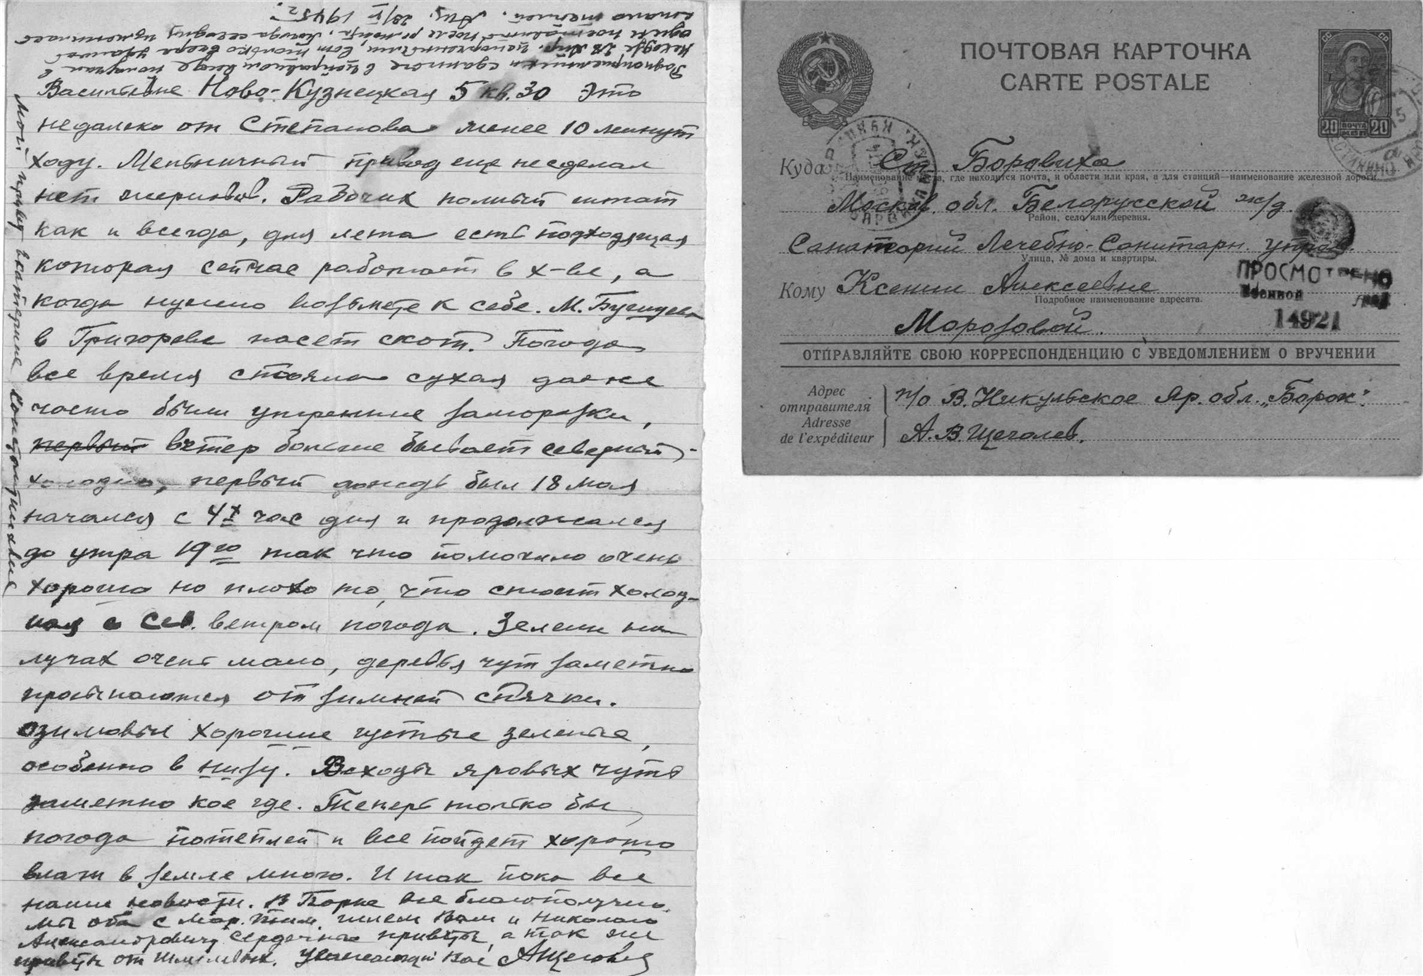 Васильевне Ново-Кузнецкая 5 кв. 30 Это
недалеко от Степанова менее 10 минут
ходу. Мельничный привод еще не сделал
нет жерновов. Рабочих полный штат
как и всегда, для лета есть подходящая
которая сейчас работает в х-ве, а
когда нужно возьмете к себе. М.
в Григорове пасет скот. Погода
все время стояла сухая даже
часто были утренние заморозки,
первый ветер больше бывает северный -
холодно, первый дождь был 18 мая
начался с 4х час дня и продолжался
до утра 19го так что помочило очень
хорошо но плохо то, что стоит холод-
ная с Сев. ветром погода. Зелени на
лучах очень мало, деревья чут заметно
просыпаются от зимней спячки.
озимовые хорошие густые зеленые,
особенно в низу. Всходы яровых чуть
заметно кое где. Теперь только бы
погода потеплей и все пойдет хорошо
влаги в земле много. И так пока все
наши новости. В Борке все благополучно.
мы оба с Мар. шлем Вам и Николаю
Александровичу сердечные приветы, а так же
приветы от Уважающий Вас АЩеголев
Мой привет Екатерине Константиновне
20/V 1945 г.
ПОЧТОВАЯ КАРТОЧКА
CARTE POSTALE
20 ПОЧТА 20
Куда Ст. Боровиха
Наименование места, где находится почта, и области или края, а для станций—наименование железной дороги
Москов. обл. Белорусской ж/д.
Район, село или деревня.
Санаторий Лечебно-Санитарн. управ.
Улица, № дома и квартиры.
ПРОСМОТРЕНО
Военной
14921
Кому Ксении Алексеевне
Подробное наименование адресата.
Морозовой.
ОТПРАВЛЯЙТЕ СВОЮ КОРРЕСПОНДЕНЦИЮ С УВЕДОМЛЕНИЕМ О ВРУЧЕНИИ
Адрес
отправителя
Adresse
de l'expéditeur
п/о В. Никульское Яр. обл. „Борок".
А. В. Щеголев.